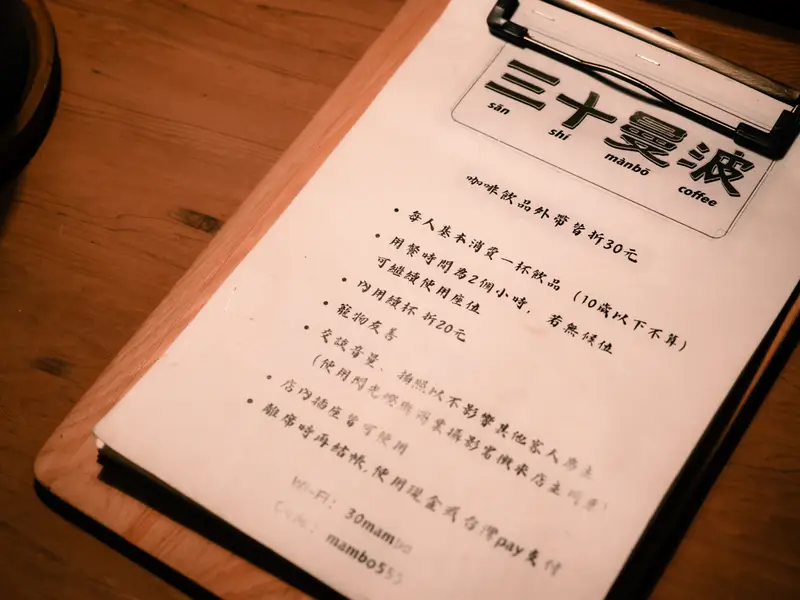 三十曼波
sān shí mànbō coffee
咖啡飲品外帶皆折30元
• 每人基本消費一杯飲品 (10歲以下不算)
• 用餐時間為2個小時, 若無候位
可繼續使用座位
• 內用續杯折20元
• 寵物友善
• 交談音量、拍照以不影響其他客人為主
(使用閃光燈與商業攝影需徵求店主同意)
• 店內插座皆可使用
• 離席時再結帳,使用現金或台灣pay支付
Wi-Fi: 30mambo
mambo555